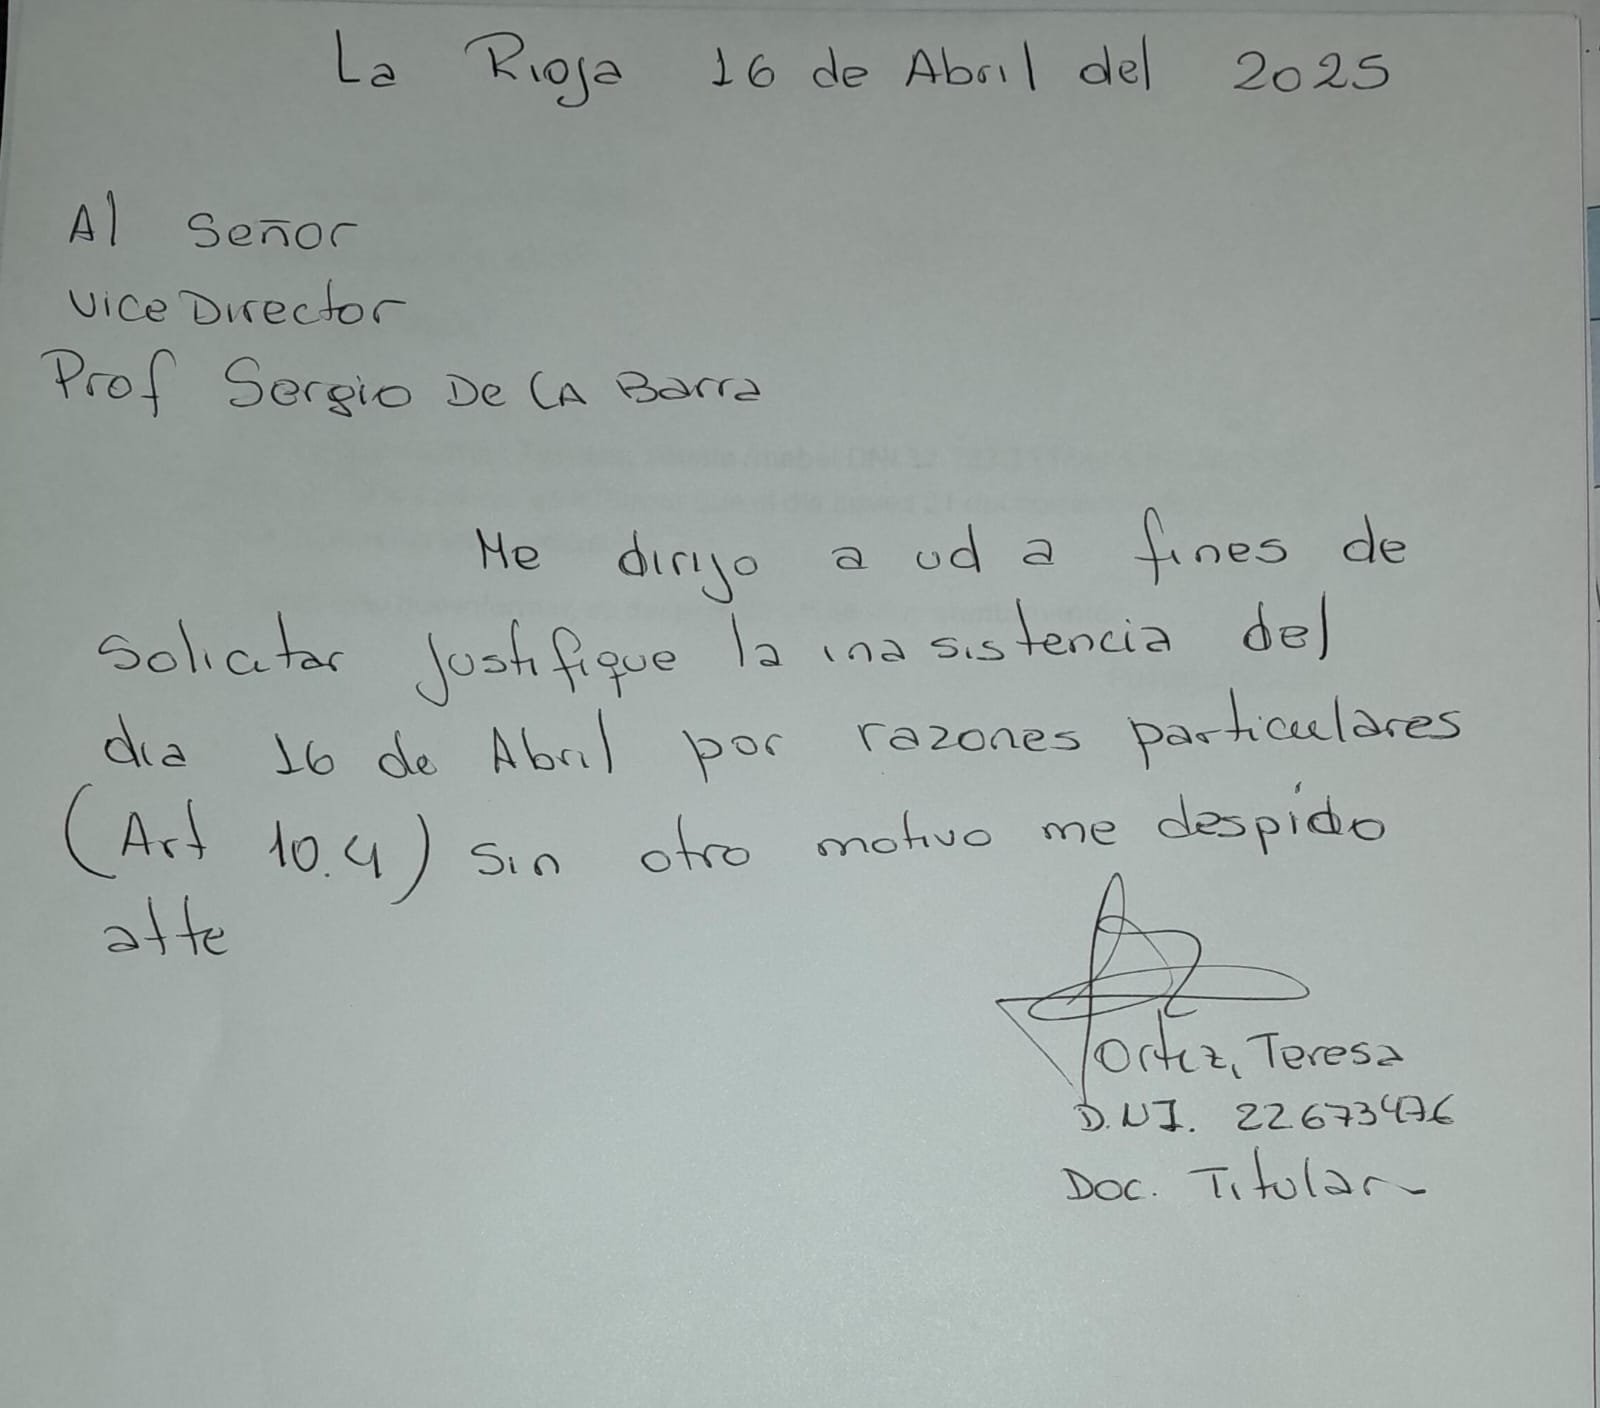 La Rioja 16 de Abril del 2025
Al Señor
Vice Director
Prof Sergio De LA Barra
Me dirijo a ud a fines de
Solicitar Justifique la inasistencia del
dia 16 de Abril por razones particulares
(Art 10.4) Sin otro motivo me despido
atte
Ortiz, Teresa
D.N.I. 22673476
Doc. Titular